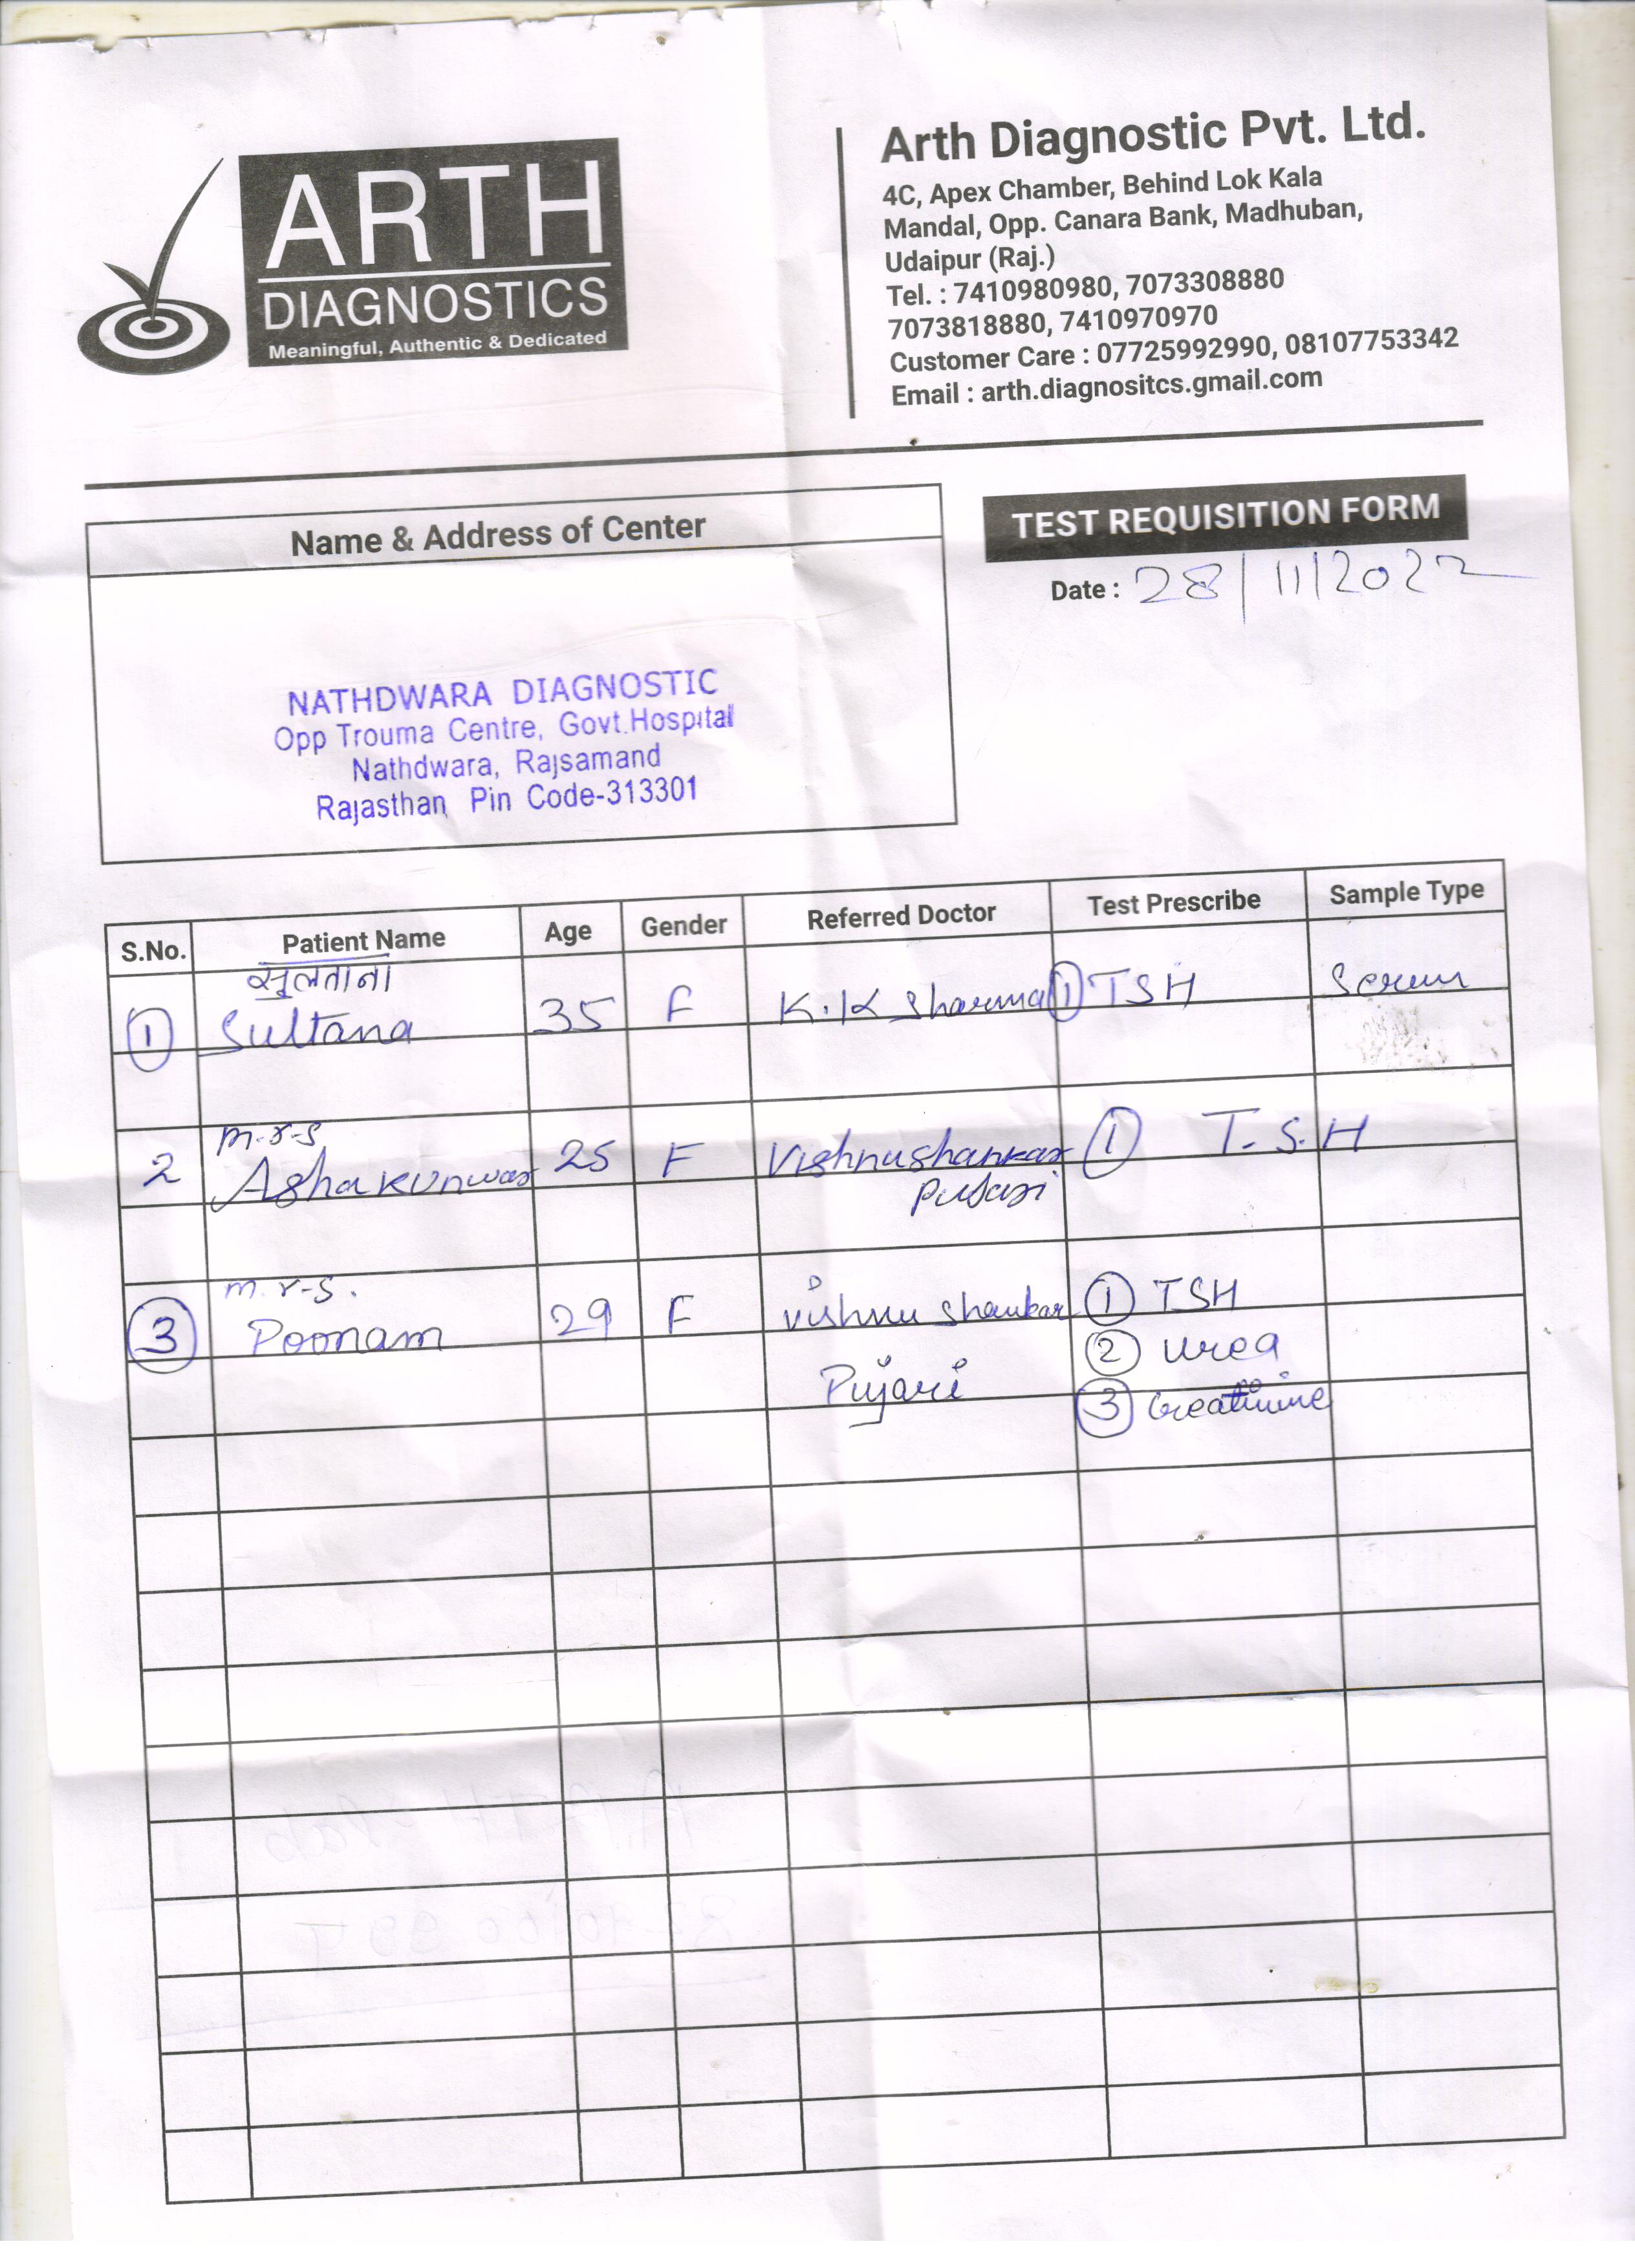 ARTH
DIAGNOSTICS
Meaningful, Authentic & Dedicated
Arth Diagnostic Pvt. Ltd.
4C, Apex Chamber, Behind Lok Kala
Mandal, Opp. Canara Bank, Madhuban,
Udaipur (Raj.)
Tel. : 7410980980, 7073308880
7073818880, 7410970970
Customer Care : 07725992990, 08107753342
Email : arth.diagnositcs.gmail.com
Name & Address of Center
NATHDWARA DIAGNOSTIC
Opp Trouma Centre, Govt.Hospital
Nathdwara, Rajsamand
Rajasthan, Pin Code-313301
TEST REQUISITION FORM
Date : 28/11/2022
S.No. Patient Name Age Gender Referred Doctor Test Prescribe Sample Type
सुलताना
1 Sultana 35 F K.K Sharma 1 TSH Serum
m.r.s
2 Asha kunwar 25 F Vishnushankar 1 T.S.H
pujari
m.r.s.
3 Poonam 29 F vishnu shankar 1 TSH
Pujari 2 urea
3 Creatinine